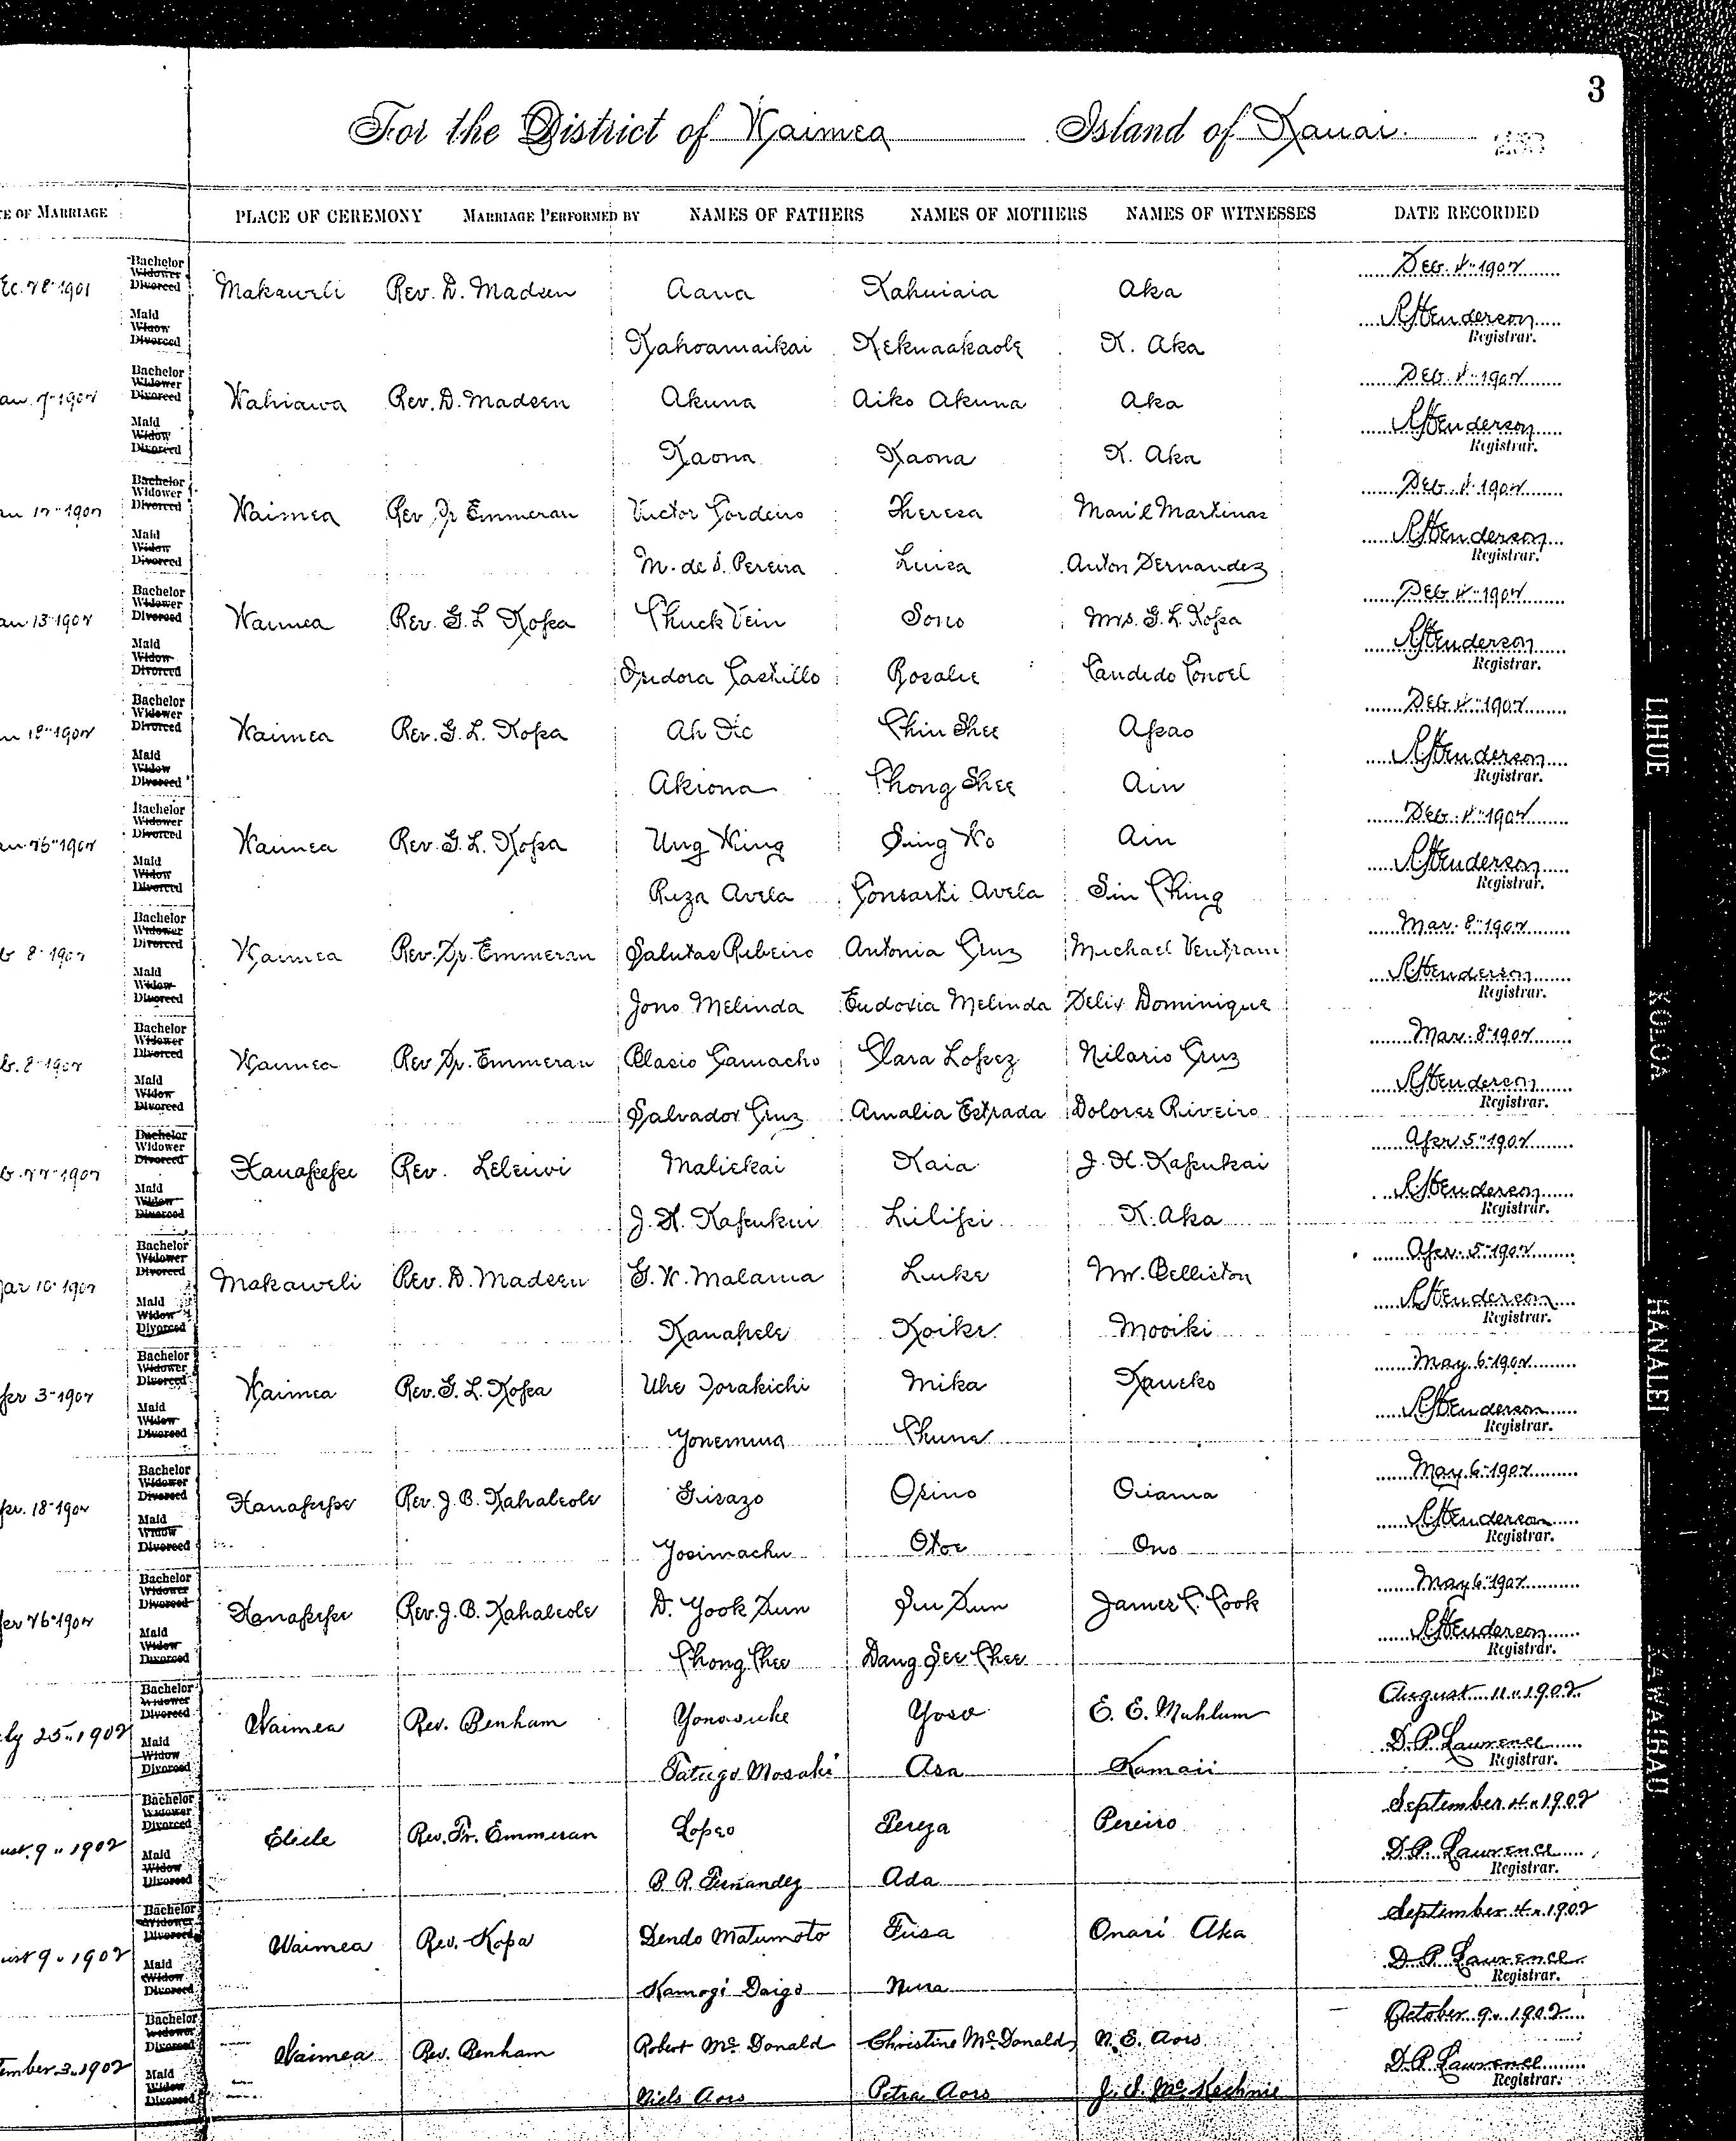 3
For the District of Waimea Island of Kauai.
TE OF MARRIAGE PLACE OF CEREMONY MARRIAGE PERFORMED BY NAMES OF FATHERS NAMES OF MOTHERS NAMES OF WITNESSES DATE RECORDED
Bachelor Widower Divorced Feb. 4" 1902
ec. 28" 1901 Makaweli Rev. D. Madsen Aana Kahuiaia Aka
Maid Widow Divorced RHenderson Registrar.
Kahoamaikai Kekuaakaole K. Aka
Bachelor Widower Divorced Feb. 4" 1902
an. 7" 1902 Wahiawa Rev. D. Madsen Akuna Aiko Akuna Aka
Maid Widow Divorced RHenderson Registrar.
Kaona Kaona K. Aka
Bachelor Widower Divorced Feb. 4" 1902
an 12" 1902 Waimea Rev Fr Emmeran Victor Cordeiro Theresa Man'l Martinas
Maid Widow Divorced RHenderson Registrar.
M. de S. Pereira Luisa Anton Fernandez
Bachelor Widower Divorced Feb 4" 1902
an 13" 1902 Waimea Rev. G. L Kopa Chuck Vein Sono Mrs. G. L. Kopa
Maid Widow Divorced RHenderson Registrar.
Isidora Castillo Rosalie Candido Conoel
Bachelor Widower Divorced Feb 4" 1902
n 18" 1902 Waimea Rev. G. L. Kopa Ah Fic Chin Shee Apao
Maid Widow Divorced RHenderson Registrar.
Akiona Chong Shee Ain
Bachelor Widower Divorced Feb. 4" 1902
an. 26" 1902 Waimea Rev. G. L. Kopa Ung Wing Sing Wo Ain
Maid Widow Divorced RHenderson Registrar.
Riza Avela Consarti Avela Sin Ching
Bachelor Widower Divorced Mar. 8" 1902
b 8" 1902 Waimea Rev. Fr. Emmeran Salutas Ribeiro Antonia Cruz Michael Ventrani
Maid Widow Divorced RHenderson Registrar.
Jono Melinda Eudoxia Melinda Felix Dominique
Bachelor Widower Divorced Mar. 8" 1902
b. 8" 1902 Waimea Rev Fr. Emmeran Blasio Camacho Clara Lopez Hilario Cruz
Maid Widow Divorced RHenderson Registrar.
Salvador Cruz Amalia Estrada Dolores Riveiro
Bachelor Widower Divorced Apr 5" 1902
b. 22" 1902 Hanapepe Rev. Leleiwi Maliekai Kaia J. H. Kapukai
Maid Widow Divorced RHenderson Registrar.
J. H. Kapukui Lilipi K. Aka
Bachelor Widower Divorced Apr. 5" 1902
ar 10" 1902 Makaweli Rev. D. Madsen G. W. Malama Luke Mr. Belliston
Maid Widow Divorced RHenderson Registrar.
Kanahele Koike Mooiki
Bachelor Widower Divorced May. 6" 1902
pr 3" 1902 Waimea Rev. G. L. Kopa Uhe Torakichi Mika Kaneko
Maid Widow Divorced RHenderson Registrar.
Yonemura Chune
Bachelor Widower Divorced May. 6" 1902
pr. 18" 1902 Hanapepe Rev. J. B. Kahaleole Gisazo Osino Oiama
Maid Widow Divorced RHenderson Registrar.
Yosimachu Otoe Ono
Bachelor Widower Divorced May 6" 1902
pr 26" 1902 Hanapepe Rev. J. B. Kahaleole D. Yook Fun Siu Fun James C. Cook
Maid Widow Divorced RHenderson Registrar.
Chong Chee Dang See Chee
Bachelor Widower Divorced August 11" 1902
ly 25" 1902 Waimea Rev. Benham Yonosuke Yoso E. E. Mahlum
Maid Widow Divorced D. P. Lawrence Registrar.
Tatugo Mosaki Asa Kamaii
Bachelor Widower Divorced September 4" 1902
ust. 9" 1902 Eleele Rev. Fr. Emmeran Lopeo Tereza Pereiro
Maid Widow Divorced D. P. Lawrence Registrar.
B. R. Fernandez Ada
Bachelor Widower Divorced September 4" 1902
ust 9" 1902 Waimea Rev. Kopa Dendo Matumoto Fusa Onari Aka
Maid Widow Divorced D. P. Lawrence Registrar.
Kamogi Daigo Nura
Bachelor Widower Divorced October 9" 1902
tember 3" 1902 Waimea Rev. Benham Robert McDonald Christine McDonald N. E. Aors
Maid Widow Divorced D. P. Lawrence Registrar.
Niels Aors Petra Aors J. I. McKechnie
LIHUE
KOLOA
HANALEI
KAWAIHAU